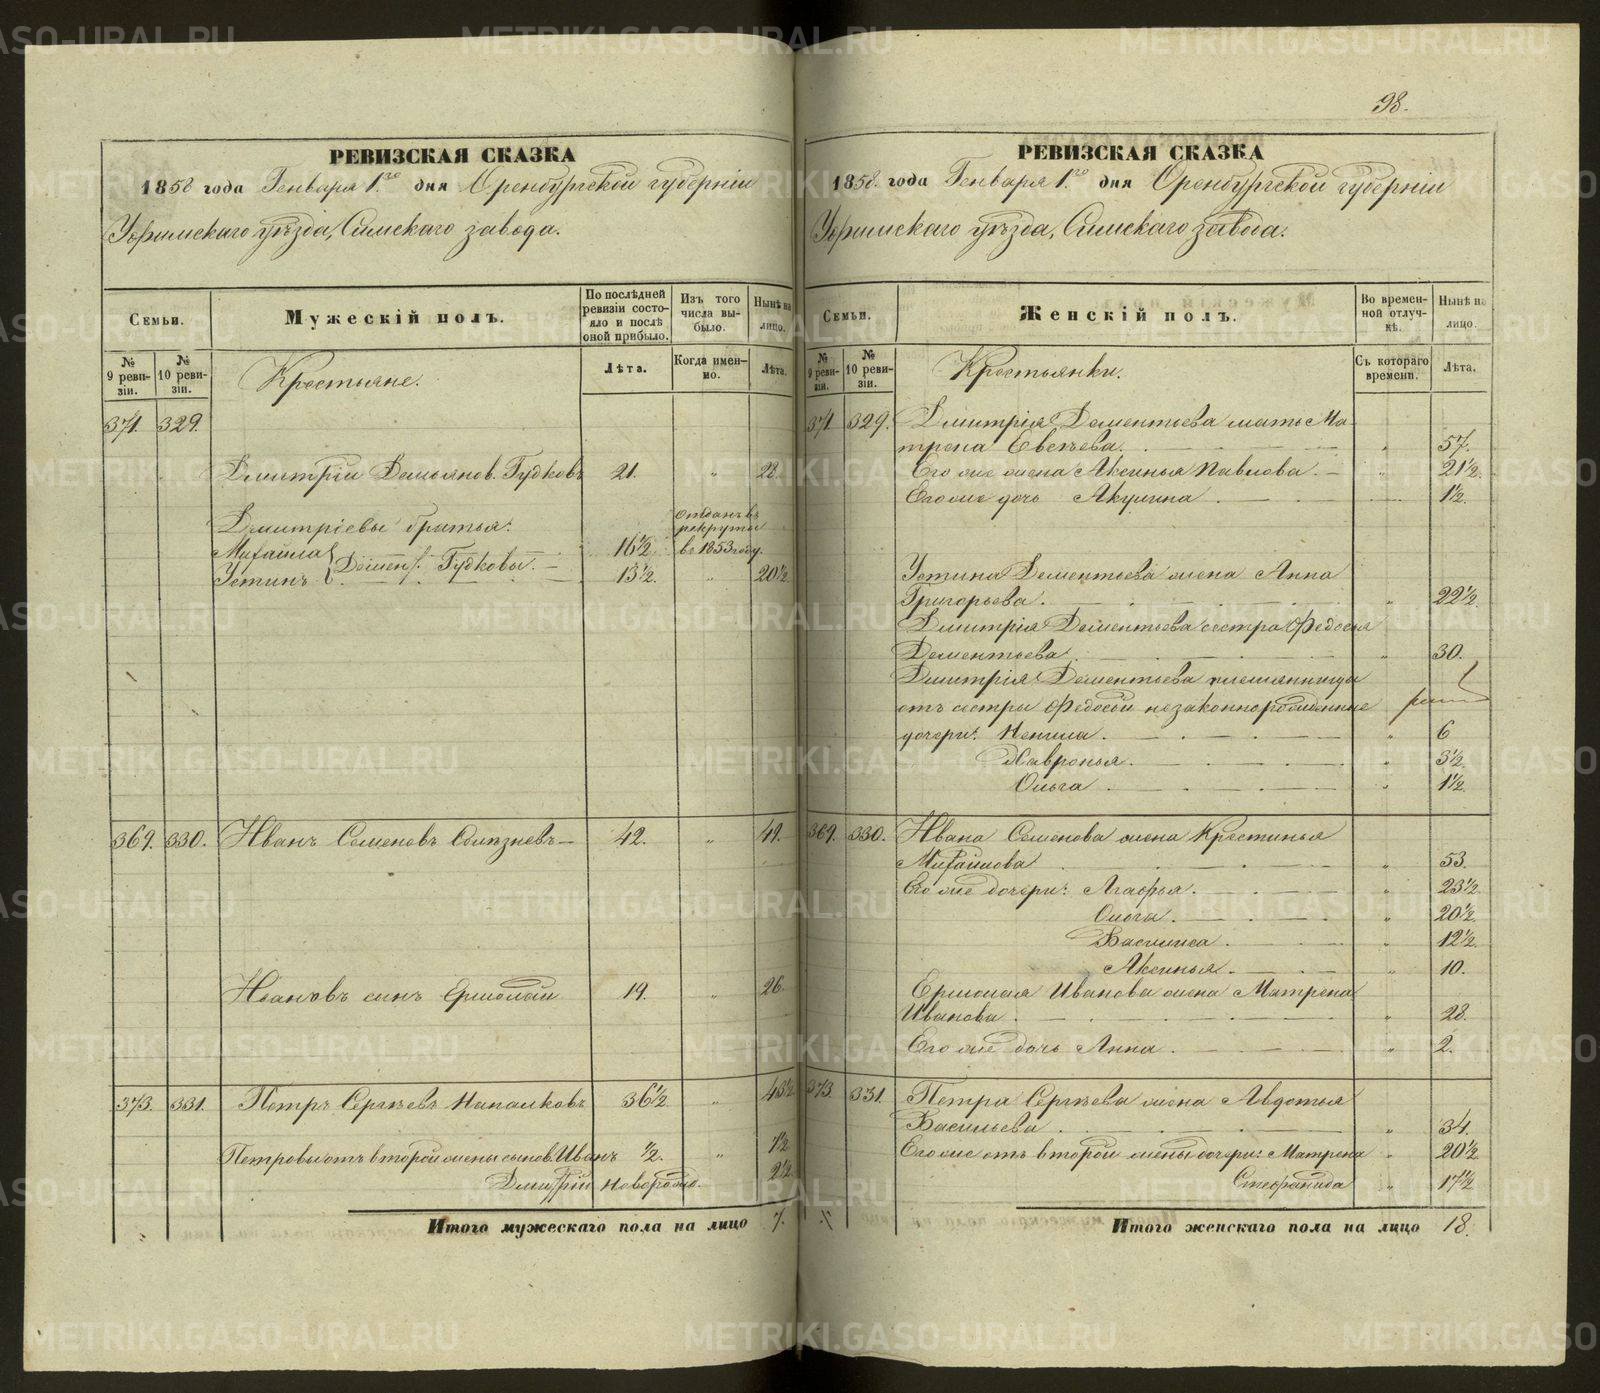 98.
РЕВИЗСКАЯ СКАЗКА
1858 года Генваря 1го дня Оренбургской губерніи
Уфимскаго уѣзда, Симскаго завода.
Семьи.
Мужескій полъ.
По послѣдней ревизіи состояло и послѣ оной прибыло.
Изъ того числа выбыло.
Нынѣ на лицо.
№ 9 ревизіи.
№ 10 ревизіи.
Крестьяне.
Лѣта.
Когда именно.
Лѣта.
371. 329.
Дмитрій Демьянов. Гудковъ 21. " 28.
Дмитріевы братья:
Михайла Демен. Гудковы. 16½ отданъ въ рекруты въ 1853 году.
Устинъ 13½. " 20½
369. 330. Иванъ Семеновъ 42. " 49.
Ивановъ сынъ Ермолай 19. " 26.
373. 331. Петръ Сергѣевъ Напалковъ 36½ " 43½
Петровы отъ второй жены сыновья Иванъ ½. "
Дмитрій новорожд. 2½
Итого мужескаго пола на лицо 7.
РЕВИЗСКАЯ СКАЗКА
1858. года Генваря 1го дня Оренбургской губерніи
Уфимскаго уѣзда, Симскаго завода.
Семьи.
Женскій полъ.
Во временной отлучкѣ.
Нынѣ на лицо.
№ 9 ревизіи.
№ 10 ревизіи.
Крестьянки.
Съ котораго времени.
Лѣта.
371. 329. Дмитрія Дементьева мать Матрена Евсѣева. " 57.
Его же жена Аксинья Павлова. " 21½
Его же дочь Акулина 1½.
Устина Дементьева жена Анна
Григорьева. " 22½.
Дмитрія Дементьева сестра Федосья
Дементьева. " 30.
Дмитрія Дементьева племянницы
отъ сестры Федосьи незаконнорожденные
дочери: Ненила. " 6
Хавронья. " 3½.
Ольга " 1½
369. 330. Ивана Семенова жена Крестинья
Михайлова " 53.
Его же дочери: Агафья. " 23½.
Ольга. " 20½
Василиса " 12½.
Аксинья. " 10.
Ермолая Иванова жена Матрена
Иванова. " 28.
Его же дочь Анна " 2.
373. 331. Петра Сергѣева жена Авдотья
Васильева " 34.
Его же отъ второй жены дочери: Матрена " 20½
Стефанида " 17½
Итого женскаго пола на лицо 18.
METRIKI.GASO-URAL.RU